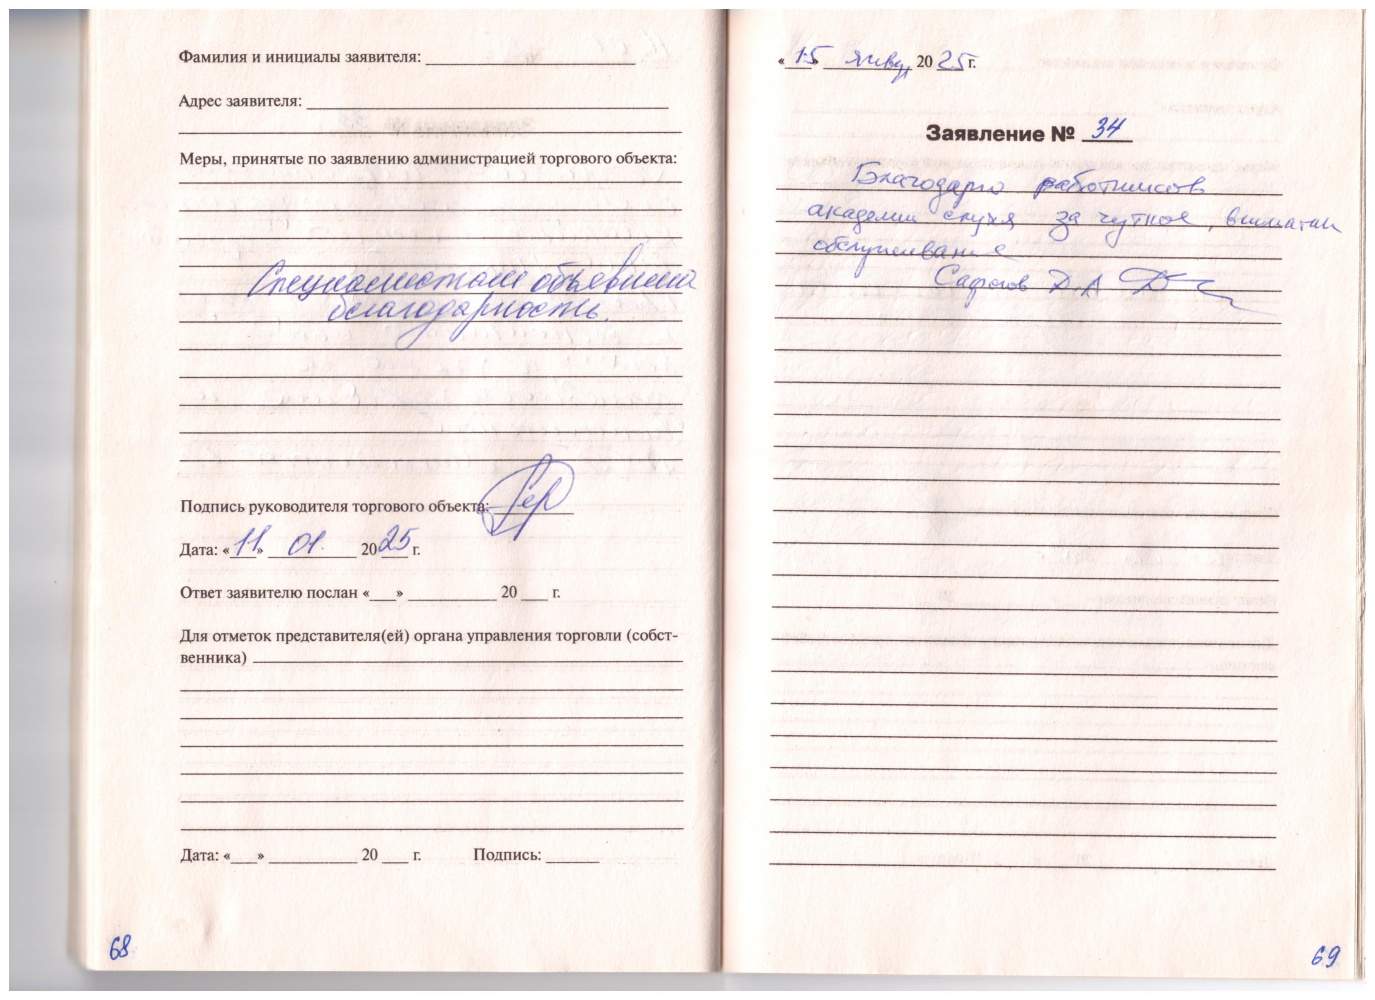 Фамилия и инициалы заявителя:
Адрес заявителя:
Меры, принятые по заявлению администрацией торгового объекта:
Специалистам объявлена
благодарность.
Подпись руководителя торгового объекта:
Дата: «11» 01. 2025 г.
Ответ заявителю послан «___» ________ 20 ___ г.
Для отметок представителя(ей) органа управления торговли (собст-
венника)
Дата: «___» ________ 20 ___ г. Подпись:
68
«15» январ 2025 г.
Заявление № 34
Благодарю работников
академии слуха за чуткое, вниматель
обслуживание
Д.А
69